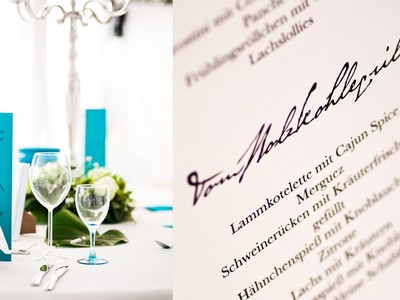 mit
Panch
Frühlingsröllchen mit
Lachslollies
Vom Holzkohlegrill
Lammkotelette mit Cajun Spice
Merguez
Schweinerücken mit Kräuterfrisch
gefüllt
Hähnchenspieß mit Knoblauch
Zitrone
Lachs mit Kräutern
spieß mit